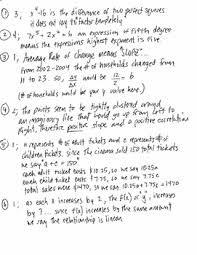 ① 3; x⁴-16 is the difference of two perfect squares
it does not say to factor completely
② 4; 7x⁵-2x⁴+6 is an expression of fifth degree
means the expressions highest exponent is five.
③ 1; Average Rate of change means "SLOPE"...
From 2002-2004 the # of households changed from
11 to 23. so, would be 12/2 = 6
(# of households would be your y value here.)
④ 2; the points seem to be tightly clustered around
an imaginary line that would go up from left to
right, therefore positive slope and a positive correlation
⑤ 1; a represents # of adult tickets and c represents # of
children tickets. since the cinema sold 150 total tickets
we say a + c = 150
each adult ticket costs $10.25, so we say 10.25a
each child ticket costs $7.75, so we say 7.75c
total sales were $1470, so we say 10.25a + 7.75c = 1470
⑥ 1; as each x increases by 2, the f(x) or y, increases
by 3... since f(x) increases by the same amount
we say the relationship is linear